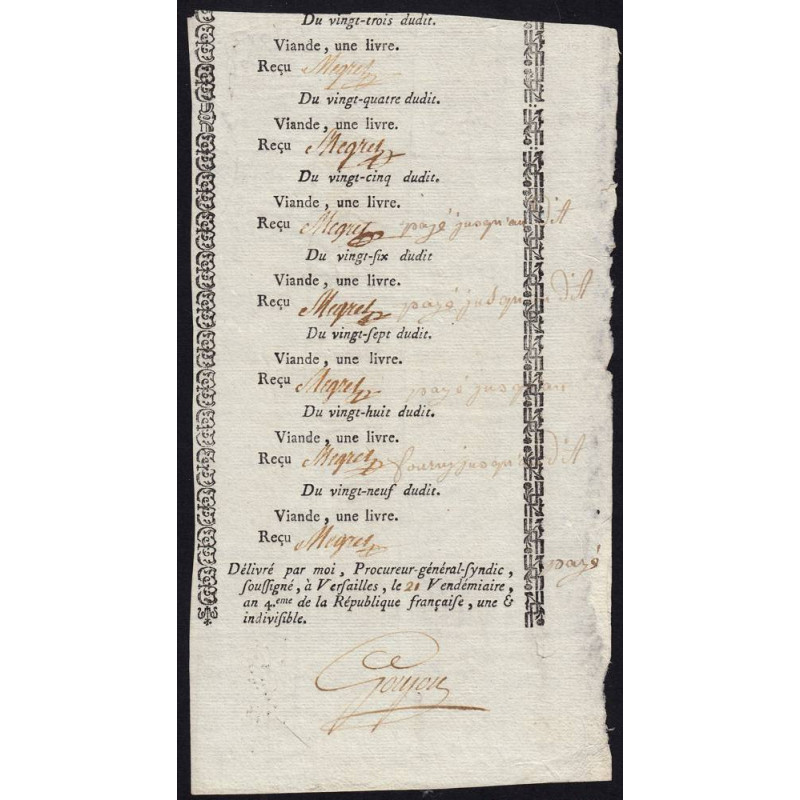 Du vingt-trois dudit.
Viande, une livre.
Reçu Megret
Du vingt-quatre dudit.
Viande, une livre.
Reçu Megret
Du vingt-cinq dudit.
Viande, une livre.
Reçu Megret payé jusqu'au dit
Du vingt-ſix dudit
Viande, une livre.
Reçu Megret payé jusqu'au dit
Du vingt-ſept dudit.
Viande, une livre.
Reçu Megret payé jusqu'au
Du vingt-huit dudit.
Viande, une livre.
Reçu Megret fourny jusqu'au dit
Du vingt-neuf dudit.
Viande, une livre.
Reçu Megret
payé
Délivré par moi, Procureur-général-ſyndic,
ſouſſigné, à Verſailles, le 21 Vendémiaire,
an 4.eme de la République françaiſe, une &
indiviſible.
Goujon